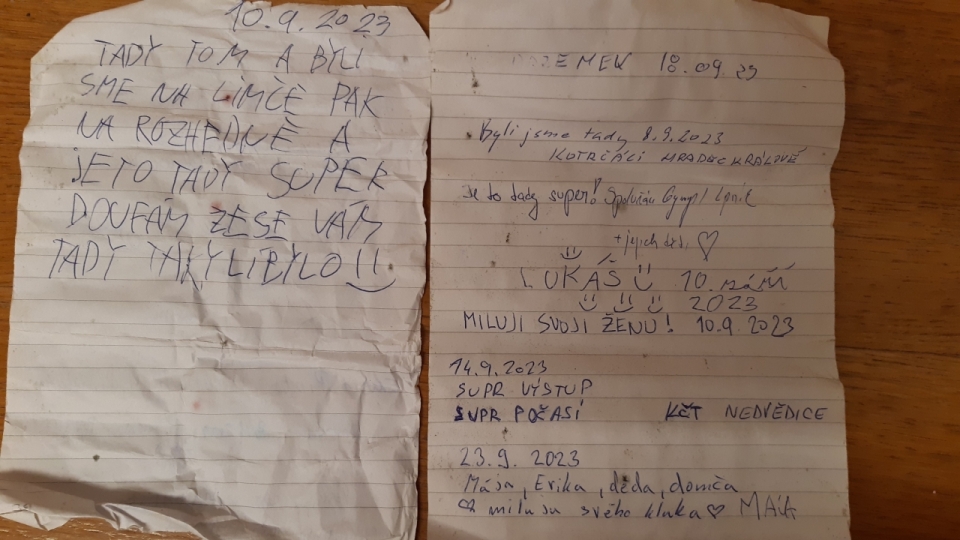 10.9.2023
TADY TOM A BYLI
SME NA LIMČE PAK
NA ROZHEDNĚ A
JETO TADY SUPER
DOUFÁM ŽESE VÁM
TADY TAKYLIBYLO !!
18.09.23
Byli jsme tady 8.9.2023
KOTRČÁCI HRADEC KRÁLOVÉ
Je to tady super!
+ jejich ♡
LUKÁŠ 10. září
2023
MILUJI SVOJI ŽENU! 10.9.2023
14.9.2023
SUPR VÝSTUP
SUPR POČASÍ KČT NEDVĚDICE
23.9. 2023
Mája, Erika, děda, domča
♡ miluju svého kluka ♡ MÁJA